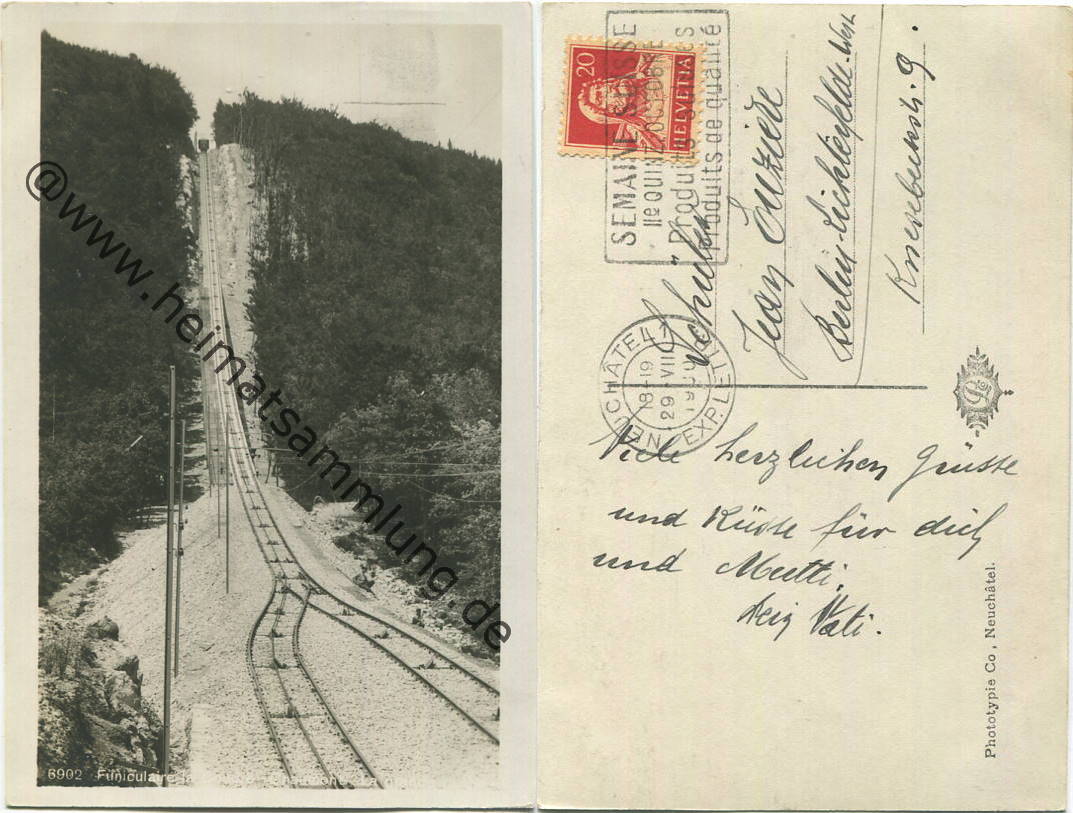 6902 Funiculaire la Coudre - Chaumont. La
@www.heimatsammlung.de
20
HELVETIA
SEMAINE SUISSE
Produits suisses
Produits de qualité
NEUCHÂTEL 1
EXP. LETT.
18-19
29.VIII
Schüler
Jean
Berlin-Lichterfelde-West
Knesebeckstr. 9.
Viele herzlichen Grüsse
und Küsse für dich
und Mutti.
dein Vati.
Phototypie Co, Neuchâtel.